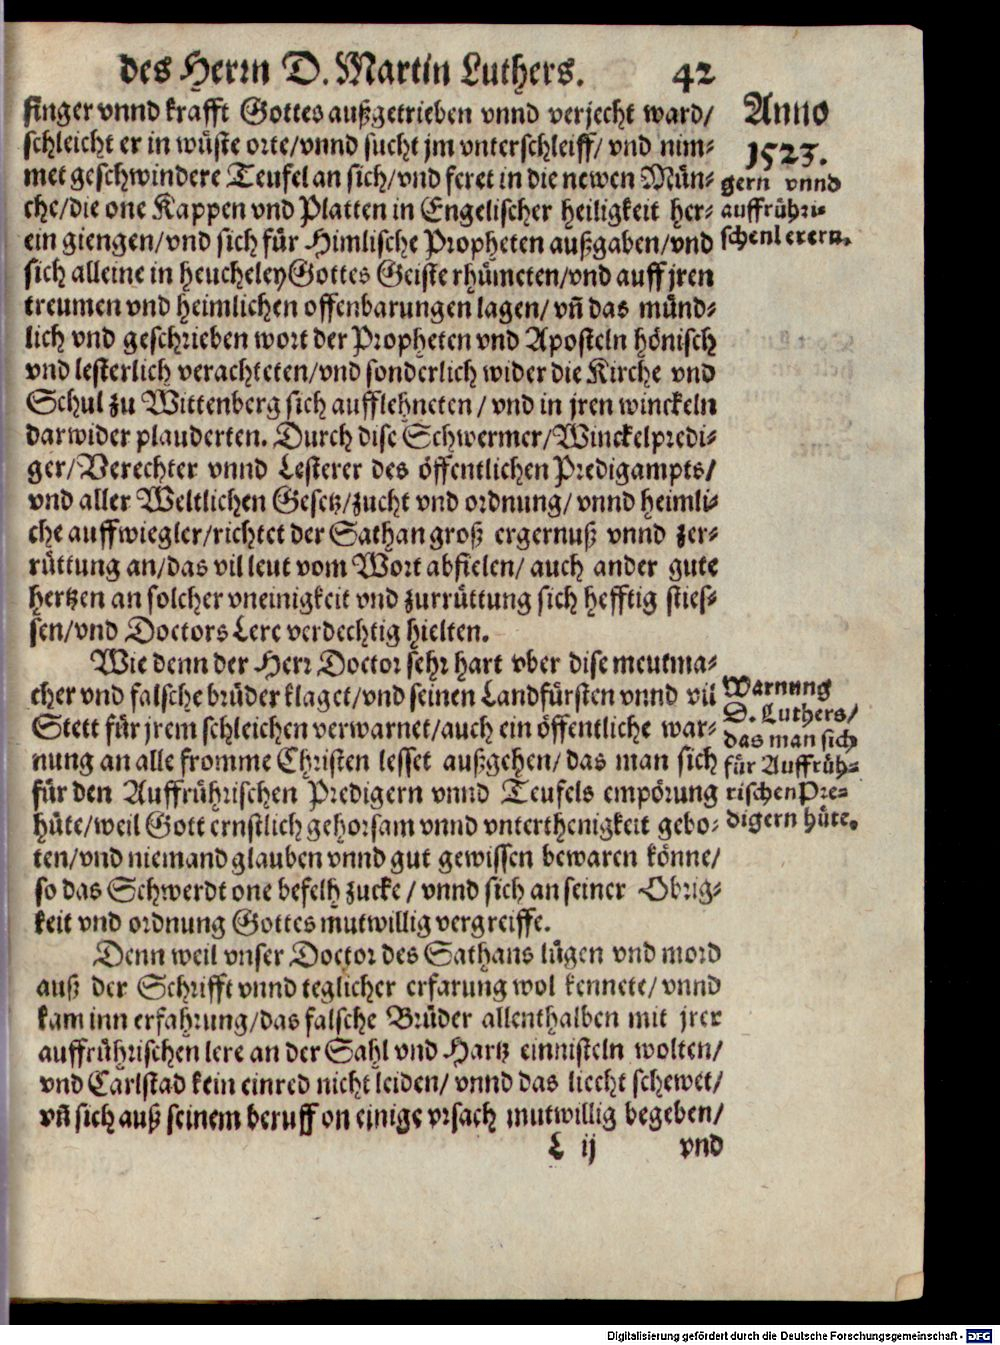 des Herrn D. Martin Luthers. 42
finger vnnd krafft Gottes außgetrieben vnnd verjecht ward/
schleicht er in wüste orte/vnnd sucht jm vnterschleiff/ vnd nim⸗
met geschwindere Teufel an sich/vnd feret in die newen Mün⸗
che/die one Kappen vnd Platten in Engelischer heiligkeit her⸗
ein giengen/vnd sich für Himlische Propheten außgaben/vnd
sich alleine in heucheley Gottes Geiste rhümeten/vnd auff jren
treumen vnd heimlichen offenbarungen lagen/ vñ das münd⸗
lich vnd geschrieben wort der Propheten vnd Aposteln hönisch
vnd lesterlich verachteten/vnd sonderlich wider die Kirche vnd
Schul zu Wittenberg sich aufflehneten / vnd in jren winckeln
darwider plauderten. Durch dise Schwermer/Winckelpredi⸗
ger/Verechter vnnd Lesterer des öffentlichen Predigampts/
vnd aller Weltlichen Gesetz/zucht vnd ordnung/ vnnd heimli⸗
che auffwiegler/richtet der Sathan groß ergernuß vnnd zer⸗
rüttung an/das vil leut vom Wort abfielen/ auch ander gute
hertzen an solcher vneinigkeit vnd zurrüttung sich hefftig sties⸗
sen/vnd Doctors Lere verdechtig hielten.
Wie denn der Herr Doctor sehr hart vber dise meutma⸗
cher vnd falsche brüder klaget/vnd seinen Landfürsten vnnd vil
Stett für jrem schleichen verwarnet/auch ein öffentliche war⸗
nung an alle fromme Christen lesset außgehen/ das man sich
für den Auffrührischen Predigern vnnd Teufels empörung
hüte/weil Gott ernstlich gehorsam vnnd vnterthenigkeit gebo⸗
ten/vnd niemand glauben vnnd gut gewissen bewaren könne/
so das Schwerdt one befelh zucke / vnnd sich an seiner Obrig⸗
keit vnd ordnung Gottes mutwillig vergreiffe.
Denn weil vnser Doctor des Sathans lügen vnd mord
auß der Schrifft vnnd teglicher erfarung wol kennete/ vnnd
kam inn erfahrung/das falsche Brüder allenthalben mit jrer
auffrührischen lere an der Sahl vnd Hartz einnisteln wolten/
vnd Carlstad kein einred nicht leiden/ vnnd das liecht schewet/
vñ sich auß seinem beruff on einige vrsach mutwillig begeben/
L ij vnd
Anno
1523.
gern vnnd
auffrühri⸗
schen lerern.
Warnung
D. Luthers/
das man sich
für Auffrüh⸗
rischen Pre⸗
digern hüte.
Digitalisierung gefördert durch die Deutsche Forschungsgemeinschaft - DFG